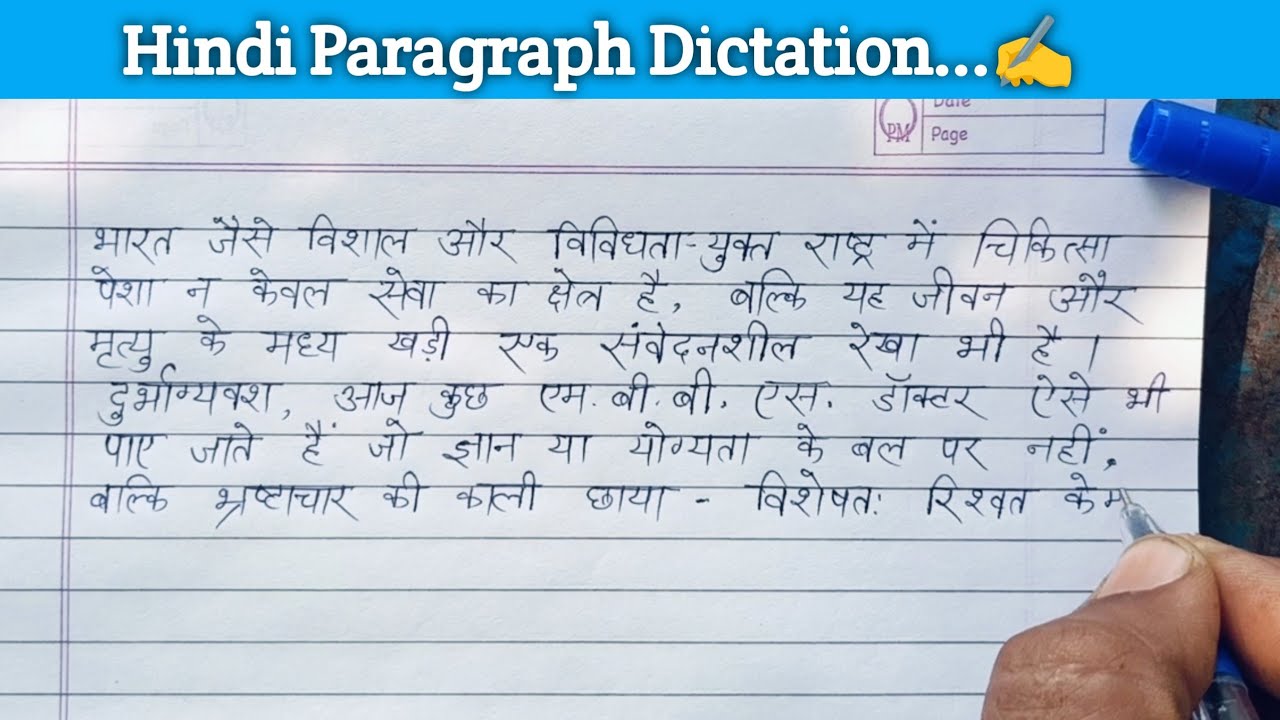 Hindi Paragraph Dictation...✍
Date
PM Page
भारत जैसे विशाल और विविधता-युक्त राष्ट्र में चिकित्सा
पेशा न केवल सेवा का क्षेत्र है, बल्कि यह जीवन और
मृत्यु के मध्य खड़ी एक संवेदनशील रेखा भी है।
दुर्भाग्यवश, आज कुछ एम.बी.बी.एस. डॉक्टर ऐसे भी
पाए जाते हैं जो ज्ञान या योग्यता के बल पर नहीं,
बाल्कि भ्रष्टाचार की काली छाया - विशेषतः रिश्वत के म